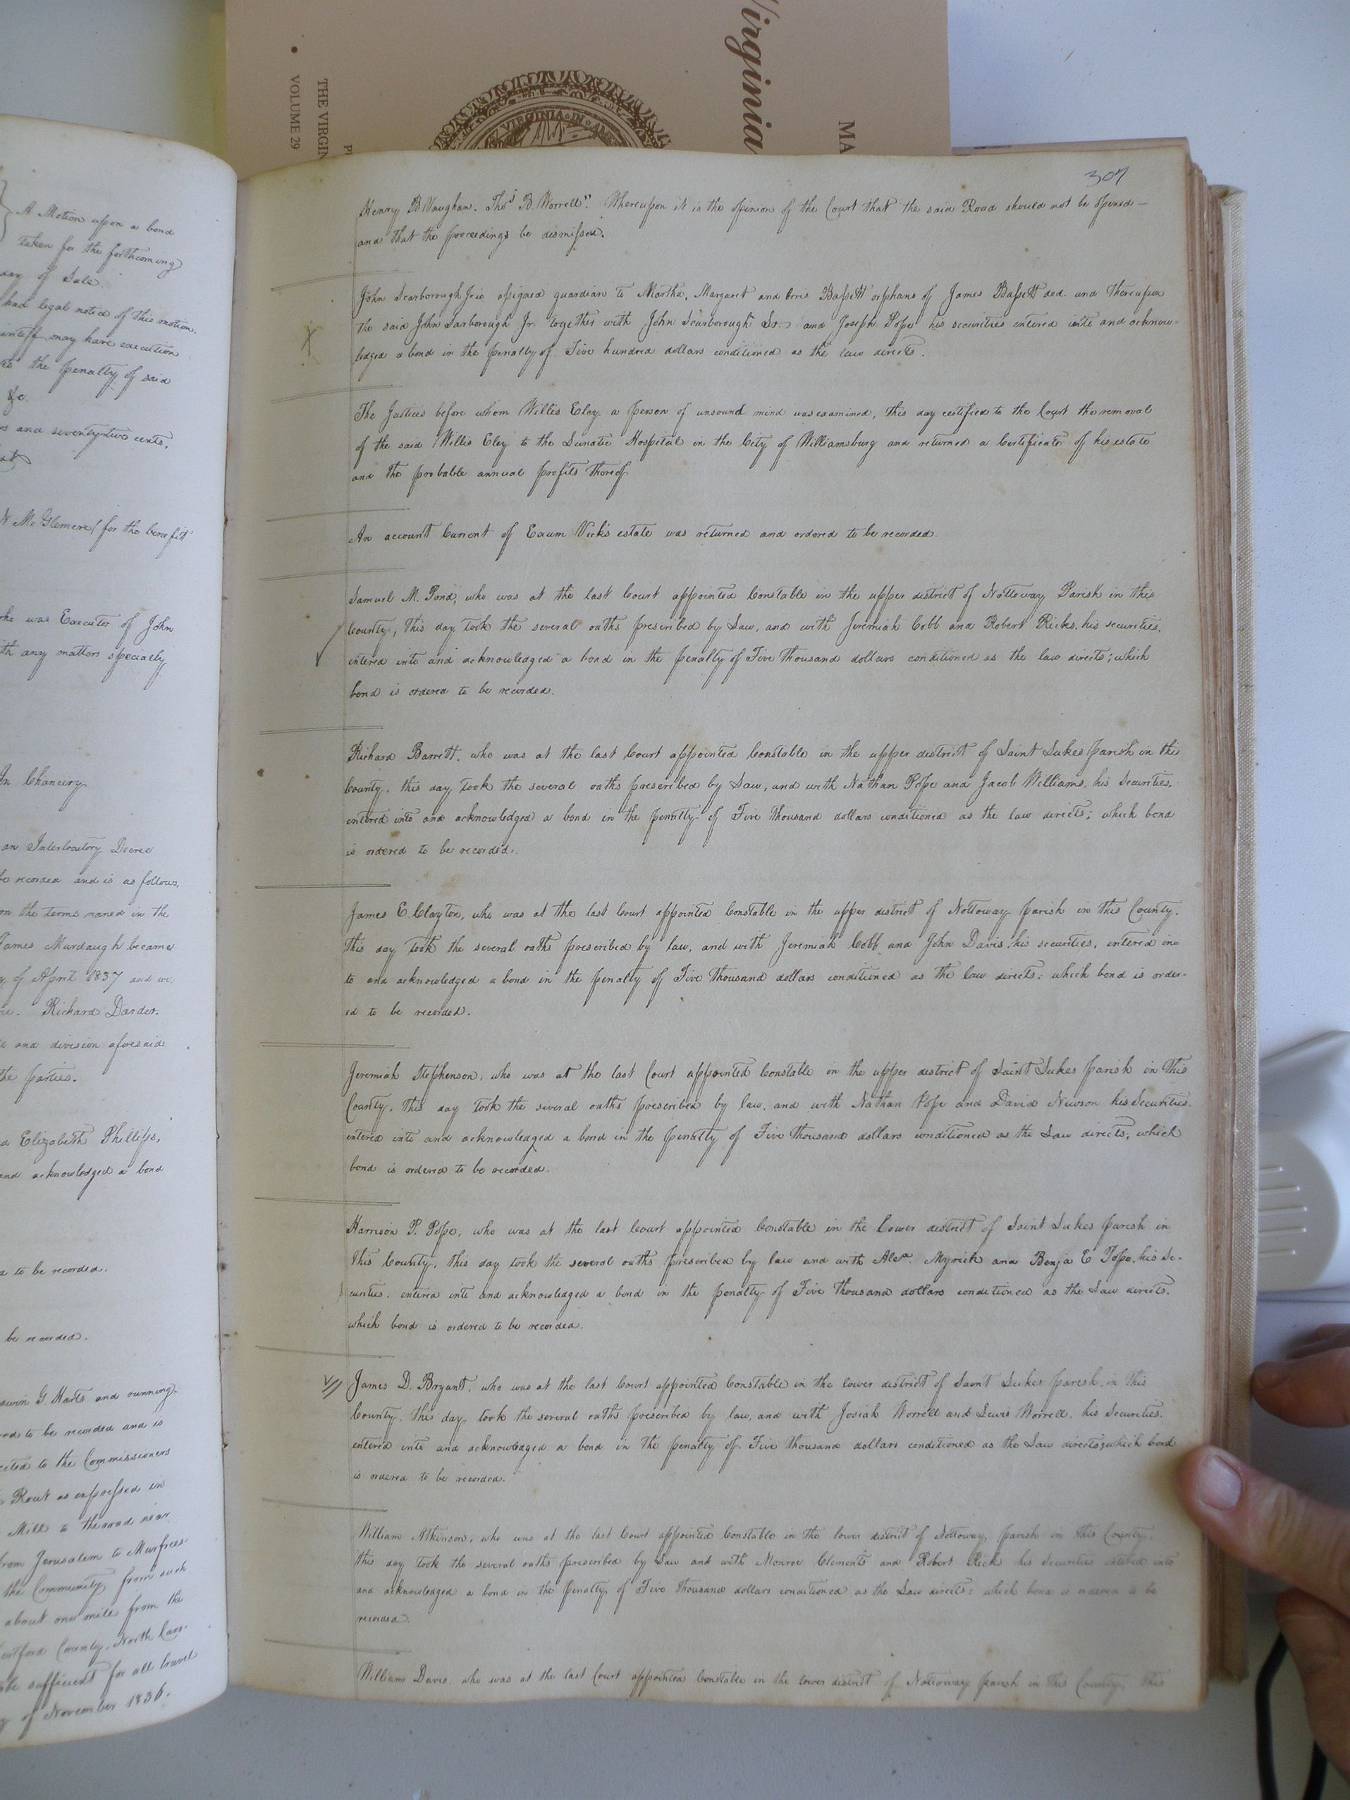 Virginia
MA
THE VIRGIN
VOLUME 29
VIRGINIA
A Motion upon a bond
taken for the forthcoming
day of Sale
had legal notice of this motion.
may have execution
the penalty of said
&c
and seventy two cents.
for the benefit
was Executor of John
any matters specially
In Chancery
an Interlocutory Decree
recorded and is as follows,
on the terms named in the
James Murdaugh became
of April 1837 and
Richard Darden
and division aforesaid
the parties.
Elizabeth Phillips,
and acknowledged a bond
to be recorded.
be recorded.
G Harts and running
to be recorded and is
to the Commissioners
Rout as expressed in
Mill to the road near
from Jerusalem to Murfrees-
the Community, from such
about one mile from the
County, North Caro-
sufficient for all travel
of November 1836.
307
Henry B Vaughan. Thos B. Worrell. Whereupon it is the opinion of the Court that the said Road should not be opened —
and that the proceedings be dismissed.
John Scarborough Jr is assigned guardian to Martha, Margaret and Bassett orphans of James Bassett ded. and thereupon
the said John Scarborough Jr. together with John Scarborough Sr. and Joseph Pope his securities entered into and acknow-
ledged a bond in the penalty of Five hundred dollars conditioned as the law directs.
The Justices before whom Willis Eley a person of unsound mind was examined, this day certified to the Court the removal
of the said Willis Eley to the Lunatic Hospital in the City of Williamsburg and returned a Certificate of his estate
and the probable annual profits thereof
An account Current of Exum Vick's estate was returned and ordered to be recorded.
Samuel M. Pond, who was at the last Court appointed Constable in the upper district of Nottoway Parish in this
County, this day took the several oaths prescribed by Law, and with Jeremiah Cobb and Robert Ricks, his securities,
entered into and acknowledged a bond in the penalty of Five thousand dollars conditioned as the law directs; which
bond is ordered to be recorded.
Richard Barrett, who was at the last Court appointed Constable in the upper district of Saint Lukes parish in this
County, this day took the several oaths prescribed by Law, and with Nathan Pope and Jacob Williams, his Securities,
entered into and acknowledged a bond in the penalty of Five thousand dollars conditioned as the law directs; which bond
is ordered to be recorded.
James E. Clayton, who was at the last Court appointed Constable in the upper district of Nottoway parish in this County,
this day took the several oaths prescribed by law, and with Jeremiah Cobb and John Davis, his securities, entered in-
to and acknowledged a bond in the penalty of Five thousand dollars conditioned as the law directs: which bond is order-
ed to be recorded.
Jeremiah Stephenson, who was at the last Court appointed Constable in the upper district of Saint Lukes parish in this
County, this day took the several oaths prescribed by law, and with Nathan Pope and David Newsom his Securities
entered into and acknowledged a bond in the penalty of Five thousand dollars conditioned as the Law directs; which
bond is ordered to be recorded.
Harrison P. Pope, who was at the last Court appointed Constable in the Lower district of Saint Lukes parish in
this County, this day took the several oaths prescribed by law and with Alexr. Myrick and Benja E Pope, his Se-
curities, entered into and acknowledged a bond in the penalty of Five thousand dollars conditioned as the Law directs,
which bond is ordered to be recorded.
James D. Bryant, who was at the last Court appointed Constable in the lower district of Saint Lukes parish, in this
County, this day took the several oaths prescribed by law, and with Josiah Worrell and Lewis Worrell, his Securities,
entered into and acknowledged a bond in the penalty of Five thousand dollars conditioned as the Law directs; which bond
is ordered to be recorded.
William Atkinson, who was at the last Court appointed Constable in the lower district of Nottoway, parish in this County,
this day took the several oaths prescribed by Law and with Monroe Clements and Robert Rick his Securities entered into
and acknowledged a bond in the penalty of Five thousand dollars conditioned as the Law directs: which bond is ordered to be
recorded.
William Davis, who was at the last Court appointed Constable in the lower district of Nottoway parish in this County, this